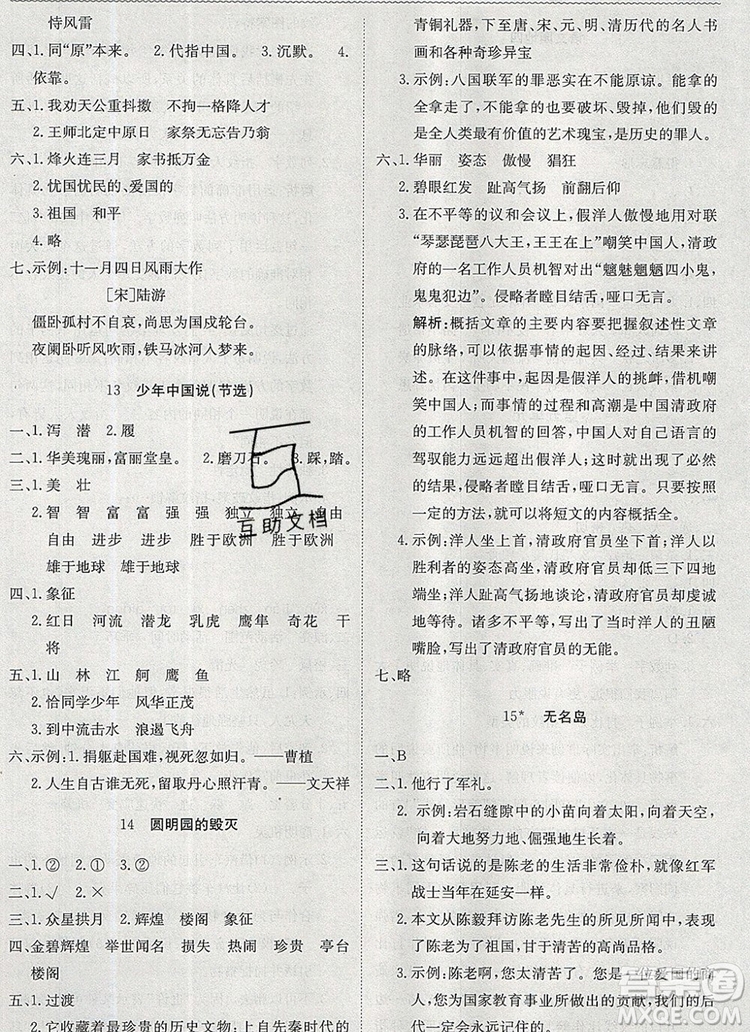 恃风雷
四、1. 同“原”本来。 2. 代指中国。 3. 沉默。 4.
依靠。
五、1. 我劝天公重抖擞 不拘一格降人才
2. 王师北定中原日 家祭无忘告乃翁
六、1. 烽火连三月 家书抵万金
2. 忧国忧民的、爱国的
3. 祖国 和平
4. 略
七、示例:十一月四日风雨大作
[宋]陆游
僵卧孤村不自哀，尚思为国戍轮台。
夜阑卧听风吹雨，铁马冰河入梦来。
13 少年中国说(节选)
一、1. 泻 潜 2. 履
二、1. 华美瑰丽，富丽堂皇。 2. 磨刀石。 3. 踩，踏。
三、1. 美 壮
2. 智 智 富 富 强 强 独立 独立 自由
自由 进步 进步 胜于欧洲 胜于欧洲
雄于地球 雄于地球
四、1. 象征
2. 红日 河流 潜龙 乳虎 鹰隼 奇花 干
将
五、1. 山 林 江 舸 鹰 鱼
2. 恰同学少年 风华正茂
3. 到中流击水 浪遏飞舟
六、示例:1. 捐躯赴国难，视死忽如归。——曹植
2. 人生自古谁无死，留取丹心照汗青。——文天祥
14 圆明园的毁灭
一、1. ② 2. ① 3. ②
二、1. √ 2. ×
三、1. 众星拱月 2. 辉煌 楼阁 象征
四、金碧辉煌 举世闻名 损失 热闹 珍贵 亭台
楼阁
五、1. 过渡
2. 它收藏着最珍贵的历史文物:上自先秦时代的
青铜礼器，下至唐、宋、元、明、清历代的名人书
画和各种奇珍异宝
3. 示例:八国联军的罪恶实在不能原谅。能拿的
全拿走了，不能拿的全部破坏、毁掉，他们毁掉
的是世界上最有价值的艺术瑰宝，是历史的罪人。
六、1. 华丽 姿态 傲慢 猖狂
2. 碧眼红发 趾高气扬 前翻后仰
3. 在不平等的议和会议上，假洋人傲慢地用对联
“琴瑟琵琶八大王，王王在上”嘲笑中国人，清政府
的一名工作人员机智对出“魑魅魍魉四小鬼，
鬼鬼犯边”。侵略者瞠目结舌，哑口无言。
解析:概括文章的主要内容要把握叙述性文章
的脉络，可以依据事情的起因、经过、结果来讲
述。事情的起因是假洋人的挑衅，借机嘲
笑中国人；事情的过程和高潮是清政府
的工作人员机智的回答，中国人对自己语言的
驾驭能力远远超出假洋人；最后写出了必然的
结果，侵略者瞠目结舌，哑口无言。只要掌握了
一定的方法，就可以将短文的内容概括全。
4. 示例:洋人坐上首，清政府官员坐下首，洋人以
胜利者的姿态高高在上，清政府官员却低三下四地
端坐；洋人趾高气扬地谈论，清政府官员却虔诚
地等待。有诸多不平等，写出了当时洋人的丑陋
嘴脸，又写出了清政府官员的无能。
七、略
15* 无名岛
一、B
二、1. 他行了军礼。
2. 示例:岩石缝隙中的小苗向着太阳，向着天空，
向着大地努力地、倔强地生长。
三、1. 这句话说的是陈老的生活非常俭朴，就像红军
战士当年在延安一样。
2. 本文从陈毅拜访陈老先生的所见所闻中，表现
了陈老为了祖国，甘于清苦的高尚品格。
3. 示例:陈老啊，您太清苦了。您是一位爱国的商
人，您为国家教育事业做出的贡献，我们的后代
会永远记住的。
互助文档
答案圈
MXQE.COM